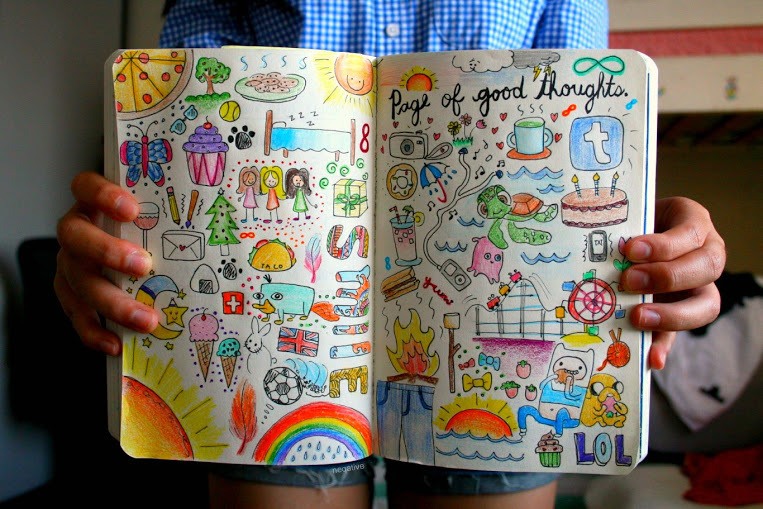 Page of good thoughts.
z z z z
t
TACO
SMILE
yum
LOL
negative